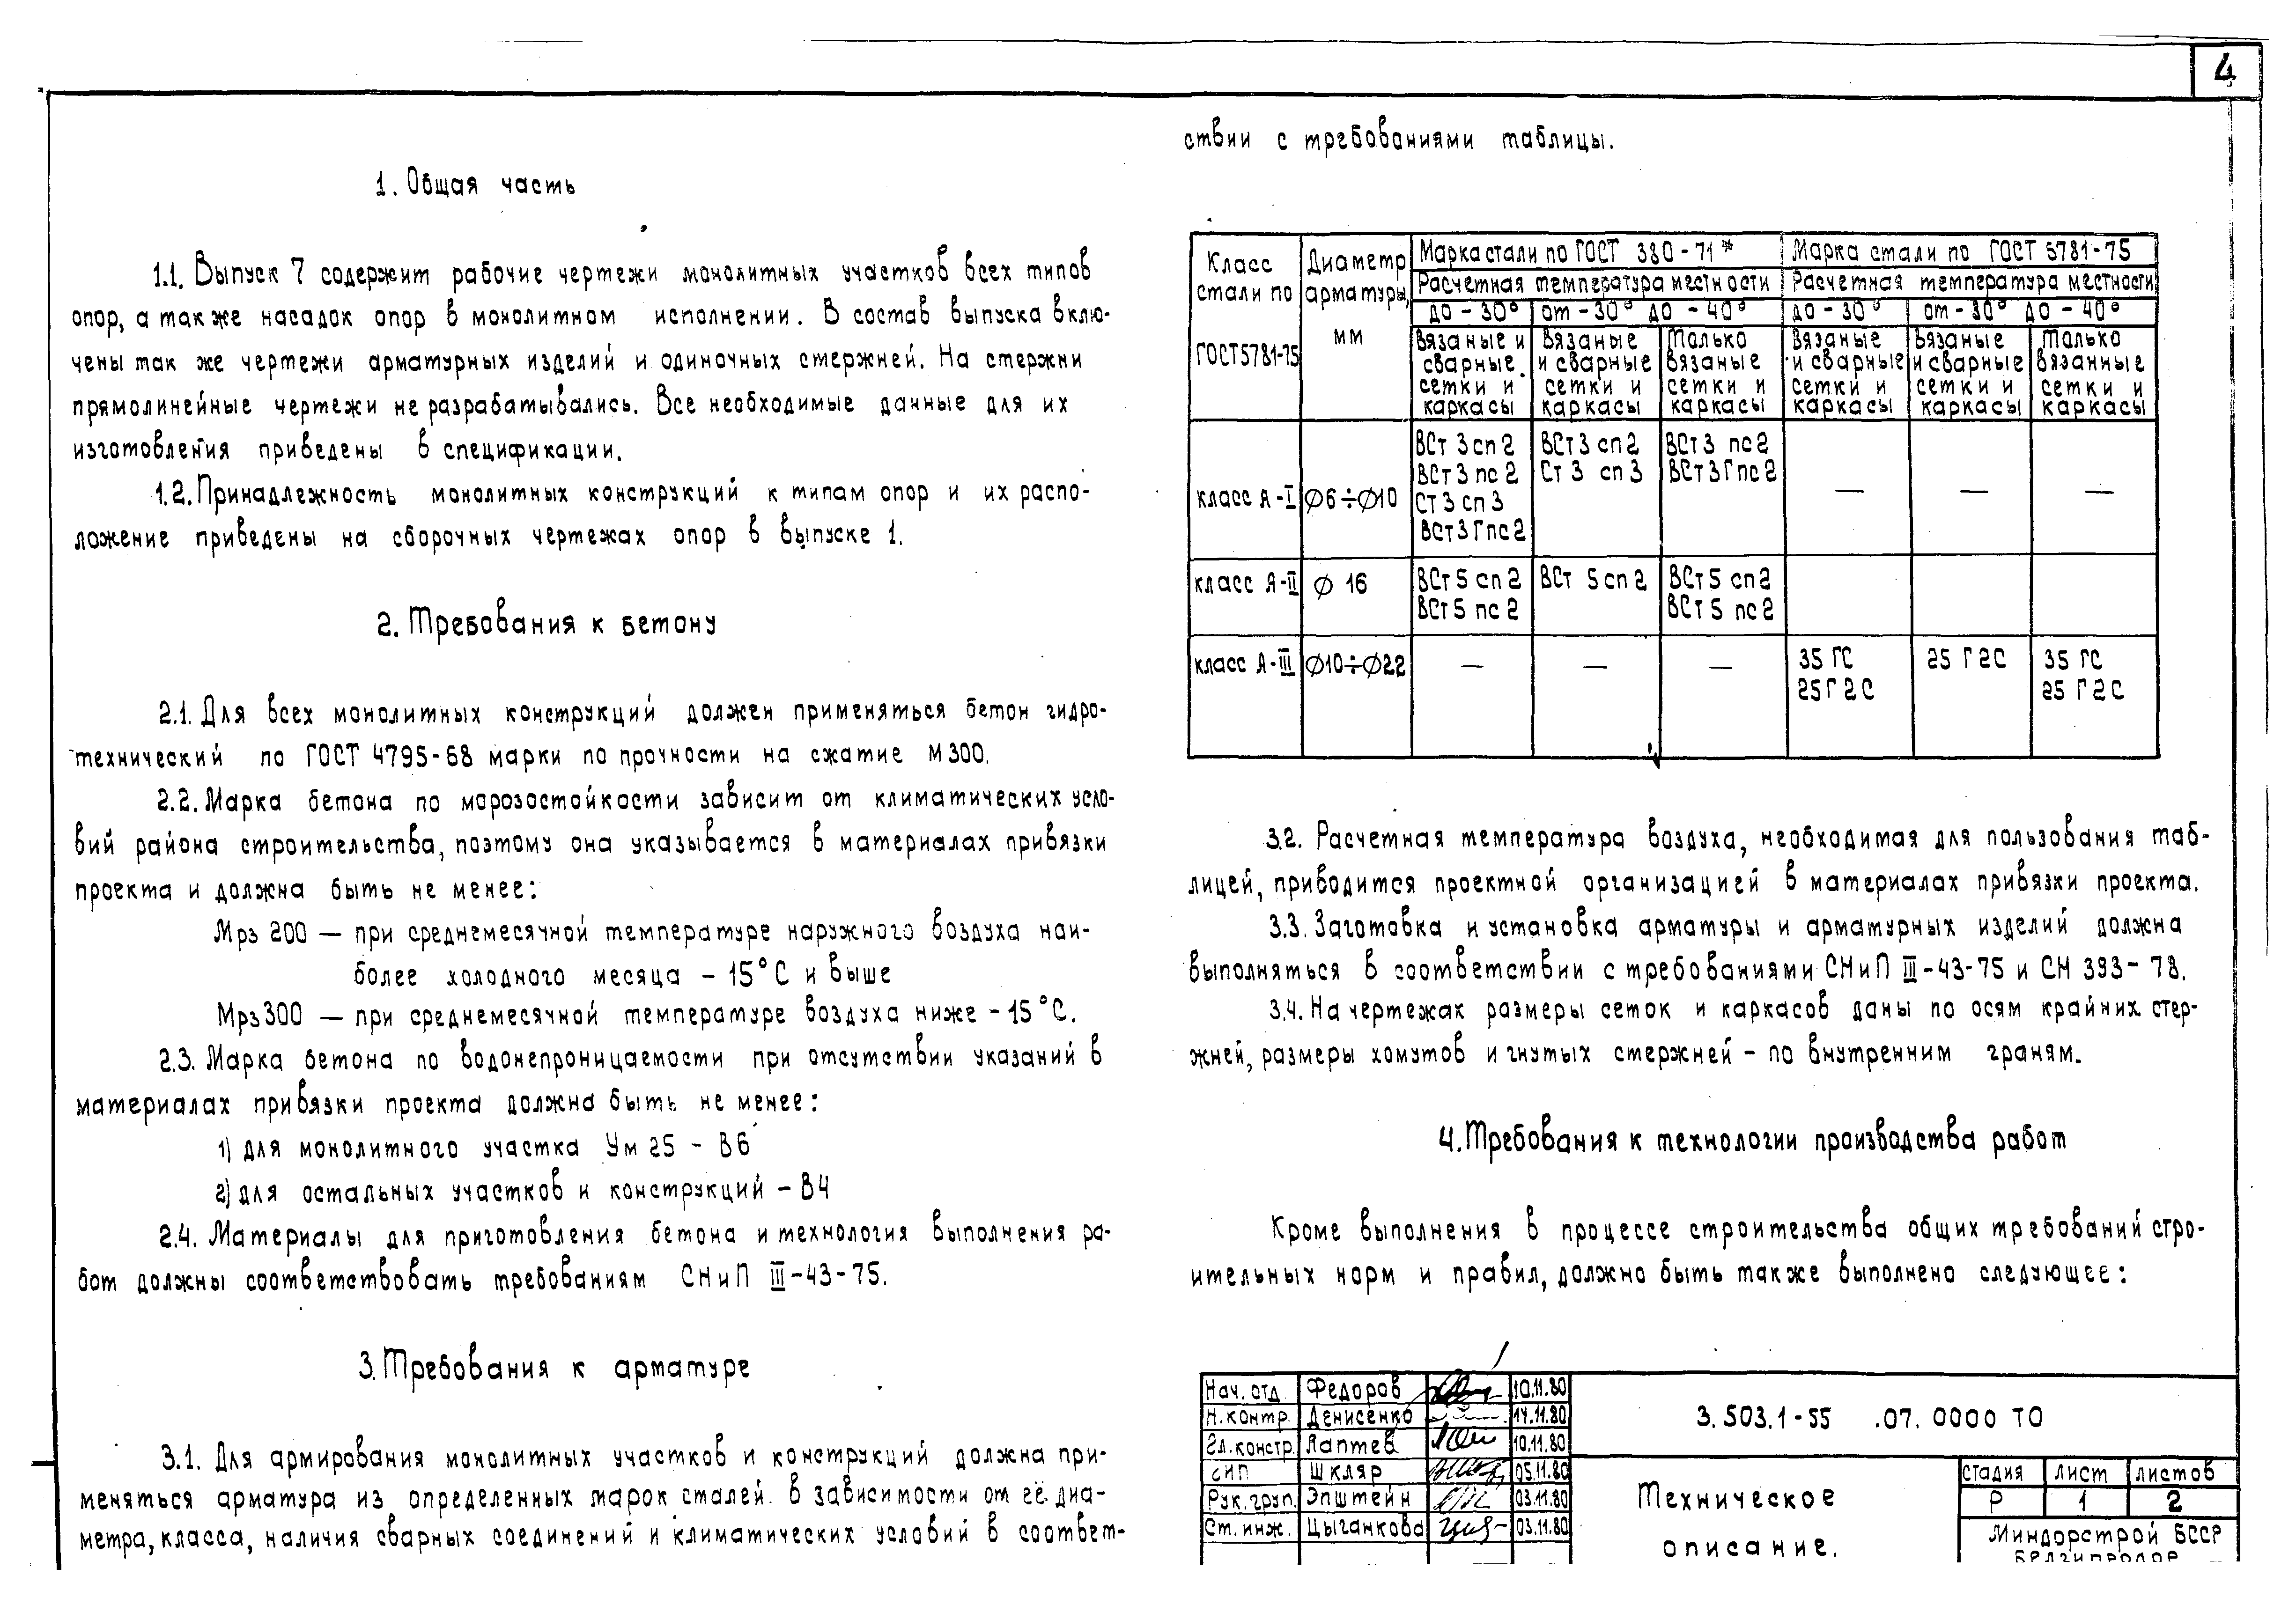 4
1. Общая часть
1.1. Выпуск 7 содержит рабочие чертежи монолитных участков всех типов
опор, а так же насадок опор в монолитном исполнении. В состав выпуска вклю-
чены так же чертежи арматурных изделий и одиночных стержней. На стержни
прямолинейные чертежи не разрабатывались. Все необходимые данные для их
изготовления приведены в спецификации.
1.2. Принадлежность монолитных конструкций к типам опор и их распо-
ложение приведены на сборочных чертежах опор в выпуске 1.
2. Требования к бетону
2.1. Для всех монолитных конструкций должен применяться бетон гидро-
технический по ГОСТ 4795-68 марки по прочности на сжатие М300.
2.2. Марка бетона по морозостойкости зависит от климатических усло-
вий района строительства, поэтому она указывается в материалах привязки
проекта и должна быть не менее:
Мрз 200 — при среднемесячной температуре наружного воздуха наи-
более холодного месяца - 15°С и выше
Мрз300 — при среднемесячной температуре воздуха ниже - 15°С.
2.3. Марка бетона по водонепроницаемости при отсутствии указаний в
материалах привязки проекта должна быть не менее:
1) для монолитного участка Ум 25 - В6
2) для остальных участков и конструкций - В4
2.4. Материалы для приготовления бетона и технология выполнения ра-
бот должны соответствовать требованиям СНиП III-43-75.
3. Требования к арматуре
3.1. Для армирования монолитных участков и конструкций должна при-
меняться арматура из определенных марок сталей в зависимости от её диа-
метра, класса, наличия сварных соединений и климатических условий в соответ-
ствии с требованиями таблицы.
Класс стали по ГОСТ5781-75
Диаметр арматуры, мм
Марка стали по ГОСТ 380-71*
Марка стали по ГОСТ 5781-75
Расчетная температура местности
Расчетная температура местности
до -30° от -30° до -40° до -30° от -30° до -40°
Вязаные и Вязаные Только Вязаные Вязаные Только
сварные и сварные вязаные и сварные и сварные вязанные
сетки и сетки и сетки и сетки и сетки и сетки и
каркасы каркасы каркасы каркасы каркасы каркасы
класс А-I Ø6÷Ø10
ВСт 3сп2 ВСт3 сп2 ВСт3 пс2
ВСт3 пс2 Ст3 сп3 ВСт3Гпс2 — — —
Ст3 сп3
ВСт3Гпс2
класс А-II Ø 16 ВСт5 сп2 ВСт 5сп2 ВСт5 сп2
ВСт5 пс2 ВСт5 пс2
класс А-III Ø10÷Ø22 — — — 35 ГС 25 Г2С 35 ГС
25Г2С 25 Г2С
3.2. Расчетная температура воздуха, необходимая для пользования таб-
лицей, приводится проектной организацией в материалах привязки проекта.
3.3. Заготовка и установка арматуры и арматурных изделий должна
выполняться в соответствии с требованиями СНиП III-43-75 и СН 393-78.
3.4. На чертежах размеры сеток и каркасов даны по осям крайних стер-
жней, размеры хомутов и гнутых стержней - по внутренним граням.
4. Требования к технологии производства работ
Кроме выполнения в процессе строительства общих требований стро-
ительных норм и правил, должно быть также выполнено следующее:
Нач. отд. Федоров 10.11.80
Н. контр. Денисенко 14.11.80
Гл. констр. Лаптев 10.11.80
ГИП Шкляр 05.11.80
Рук. груп. Эпштейн 03.11.80
Ст. инж. Цыганкова 03.11.80
3.503.1-55 .07. 0000 ТО
Техническое
описание.
стадия лист листов
Р 1 2
Миндорстрой БССР
Белгипродор